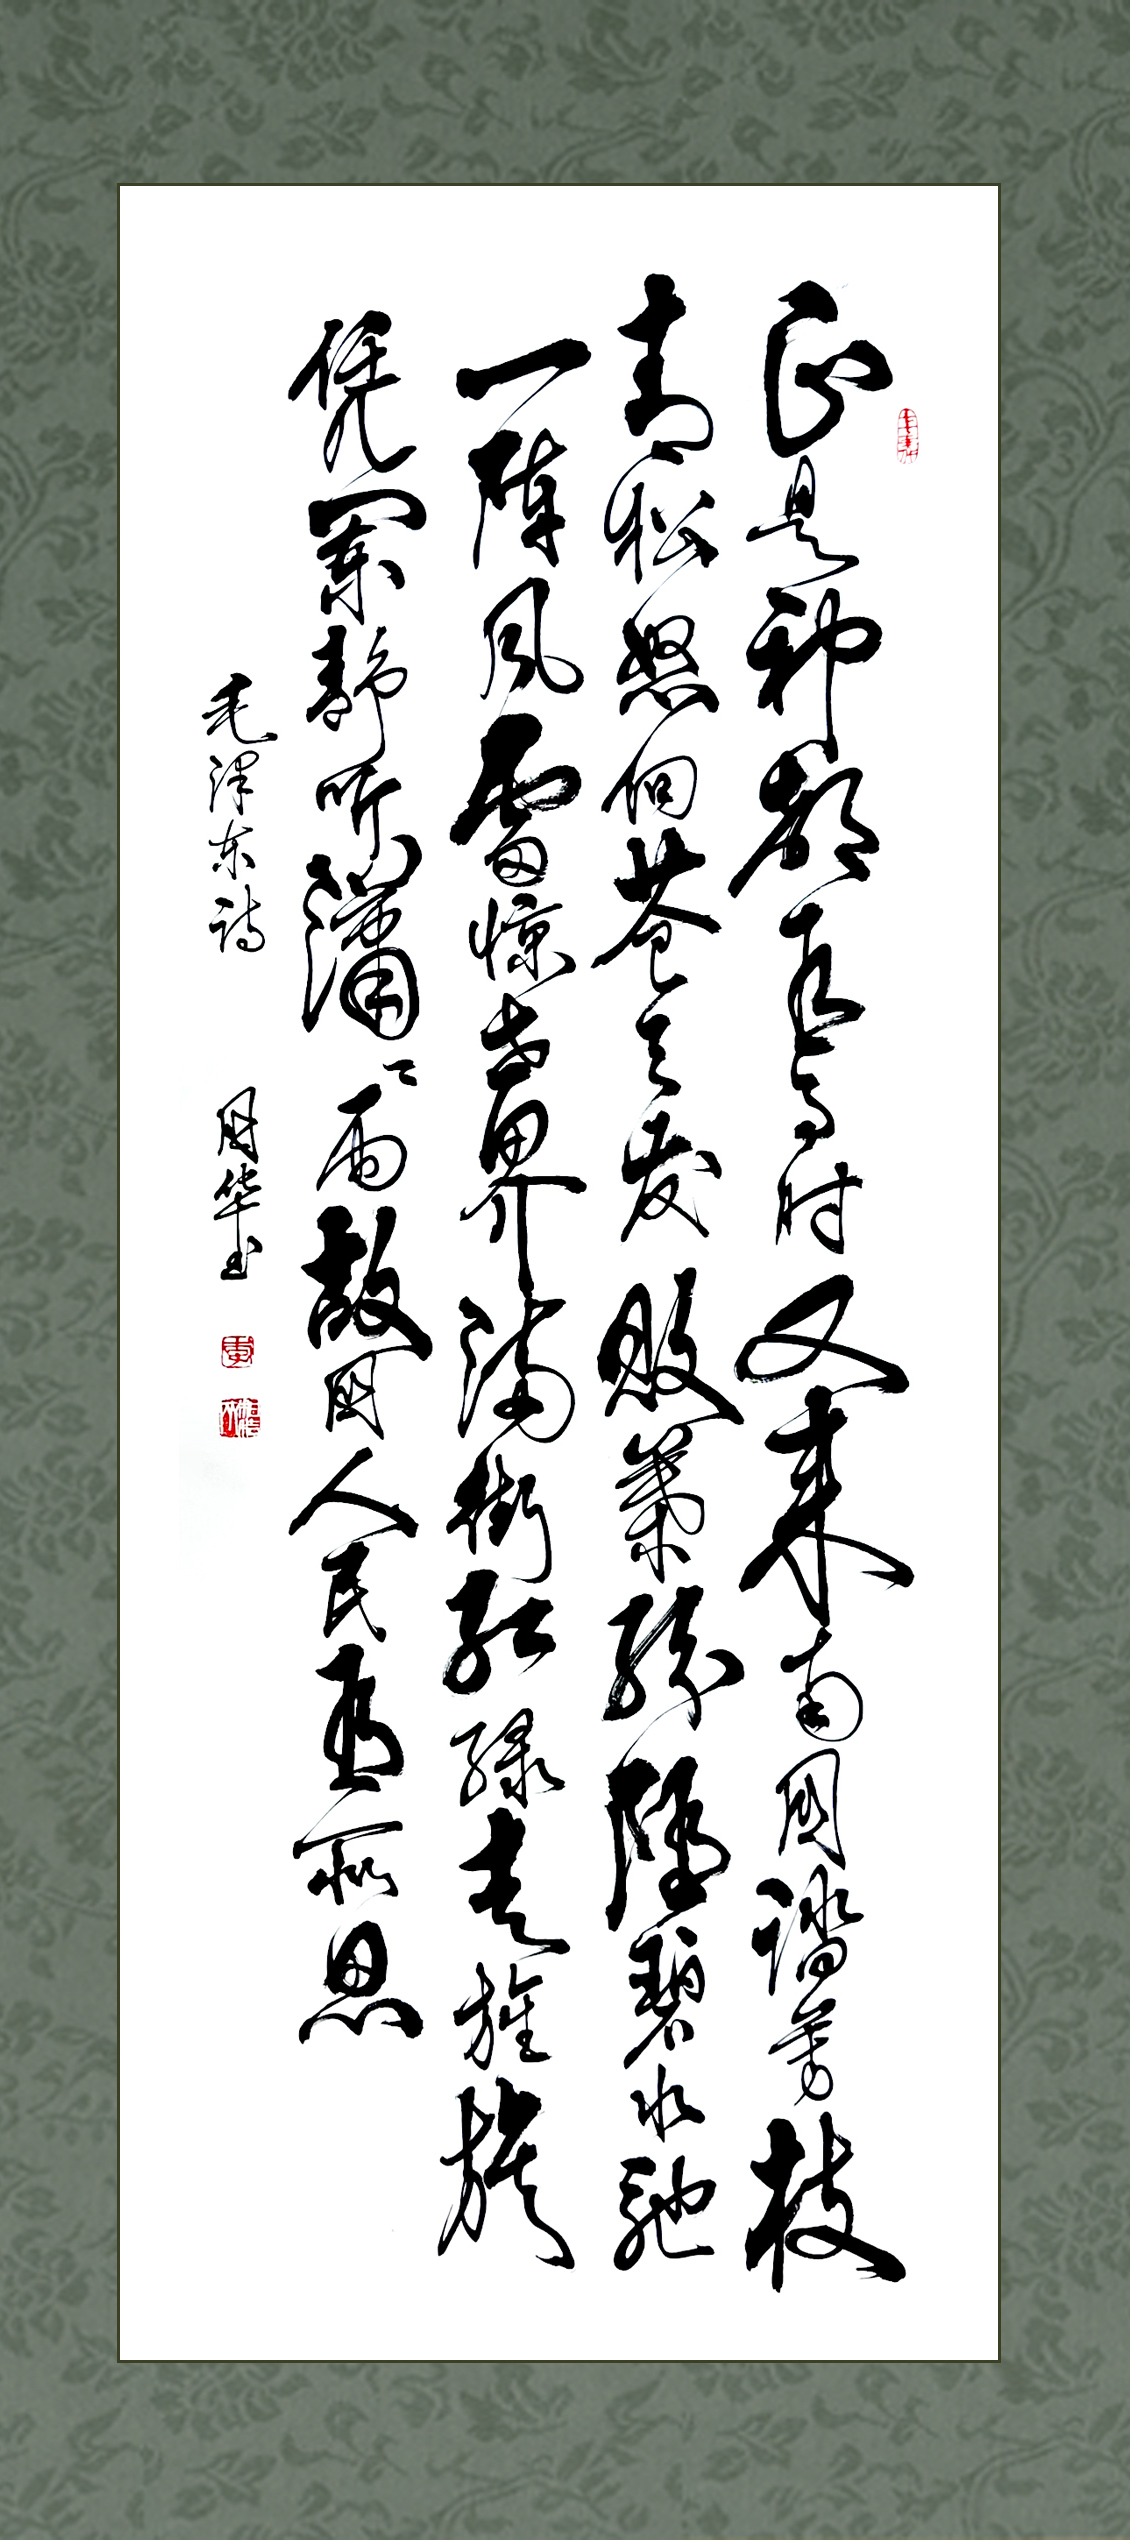 正是神都有事时又来南国踏芳枝
青松怒向苍天发败葉纷随碧水驰
一阵风雷惊世界满街红绿走旌旗
凭阑静听潇々雨故国人民有所思
毛泽东诗 周华书